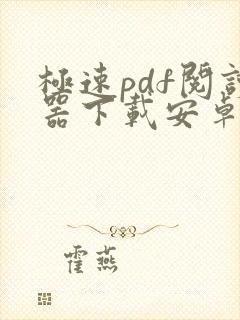 極速pdf閱讀
器下載安卓
霍燕